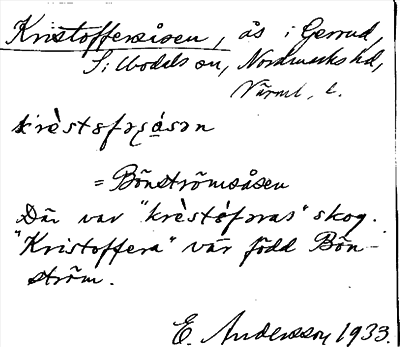 Kristoffersåsen, ås i Gerrud,
S: Modets sn, Nordmarks hd,
Värml. l.
krèstofərsåsən
= Bönströmsåsen
Där var "krèstófəras" skog.
"Kristoffera" var född Bön-
ström.
E. Andersson 1933.